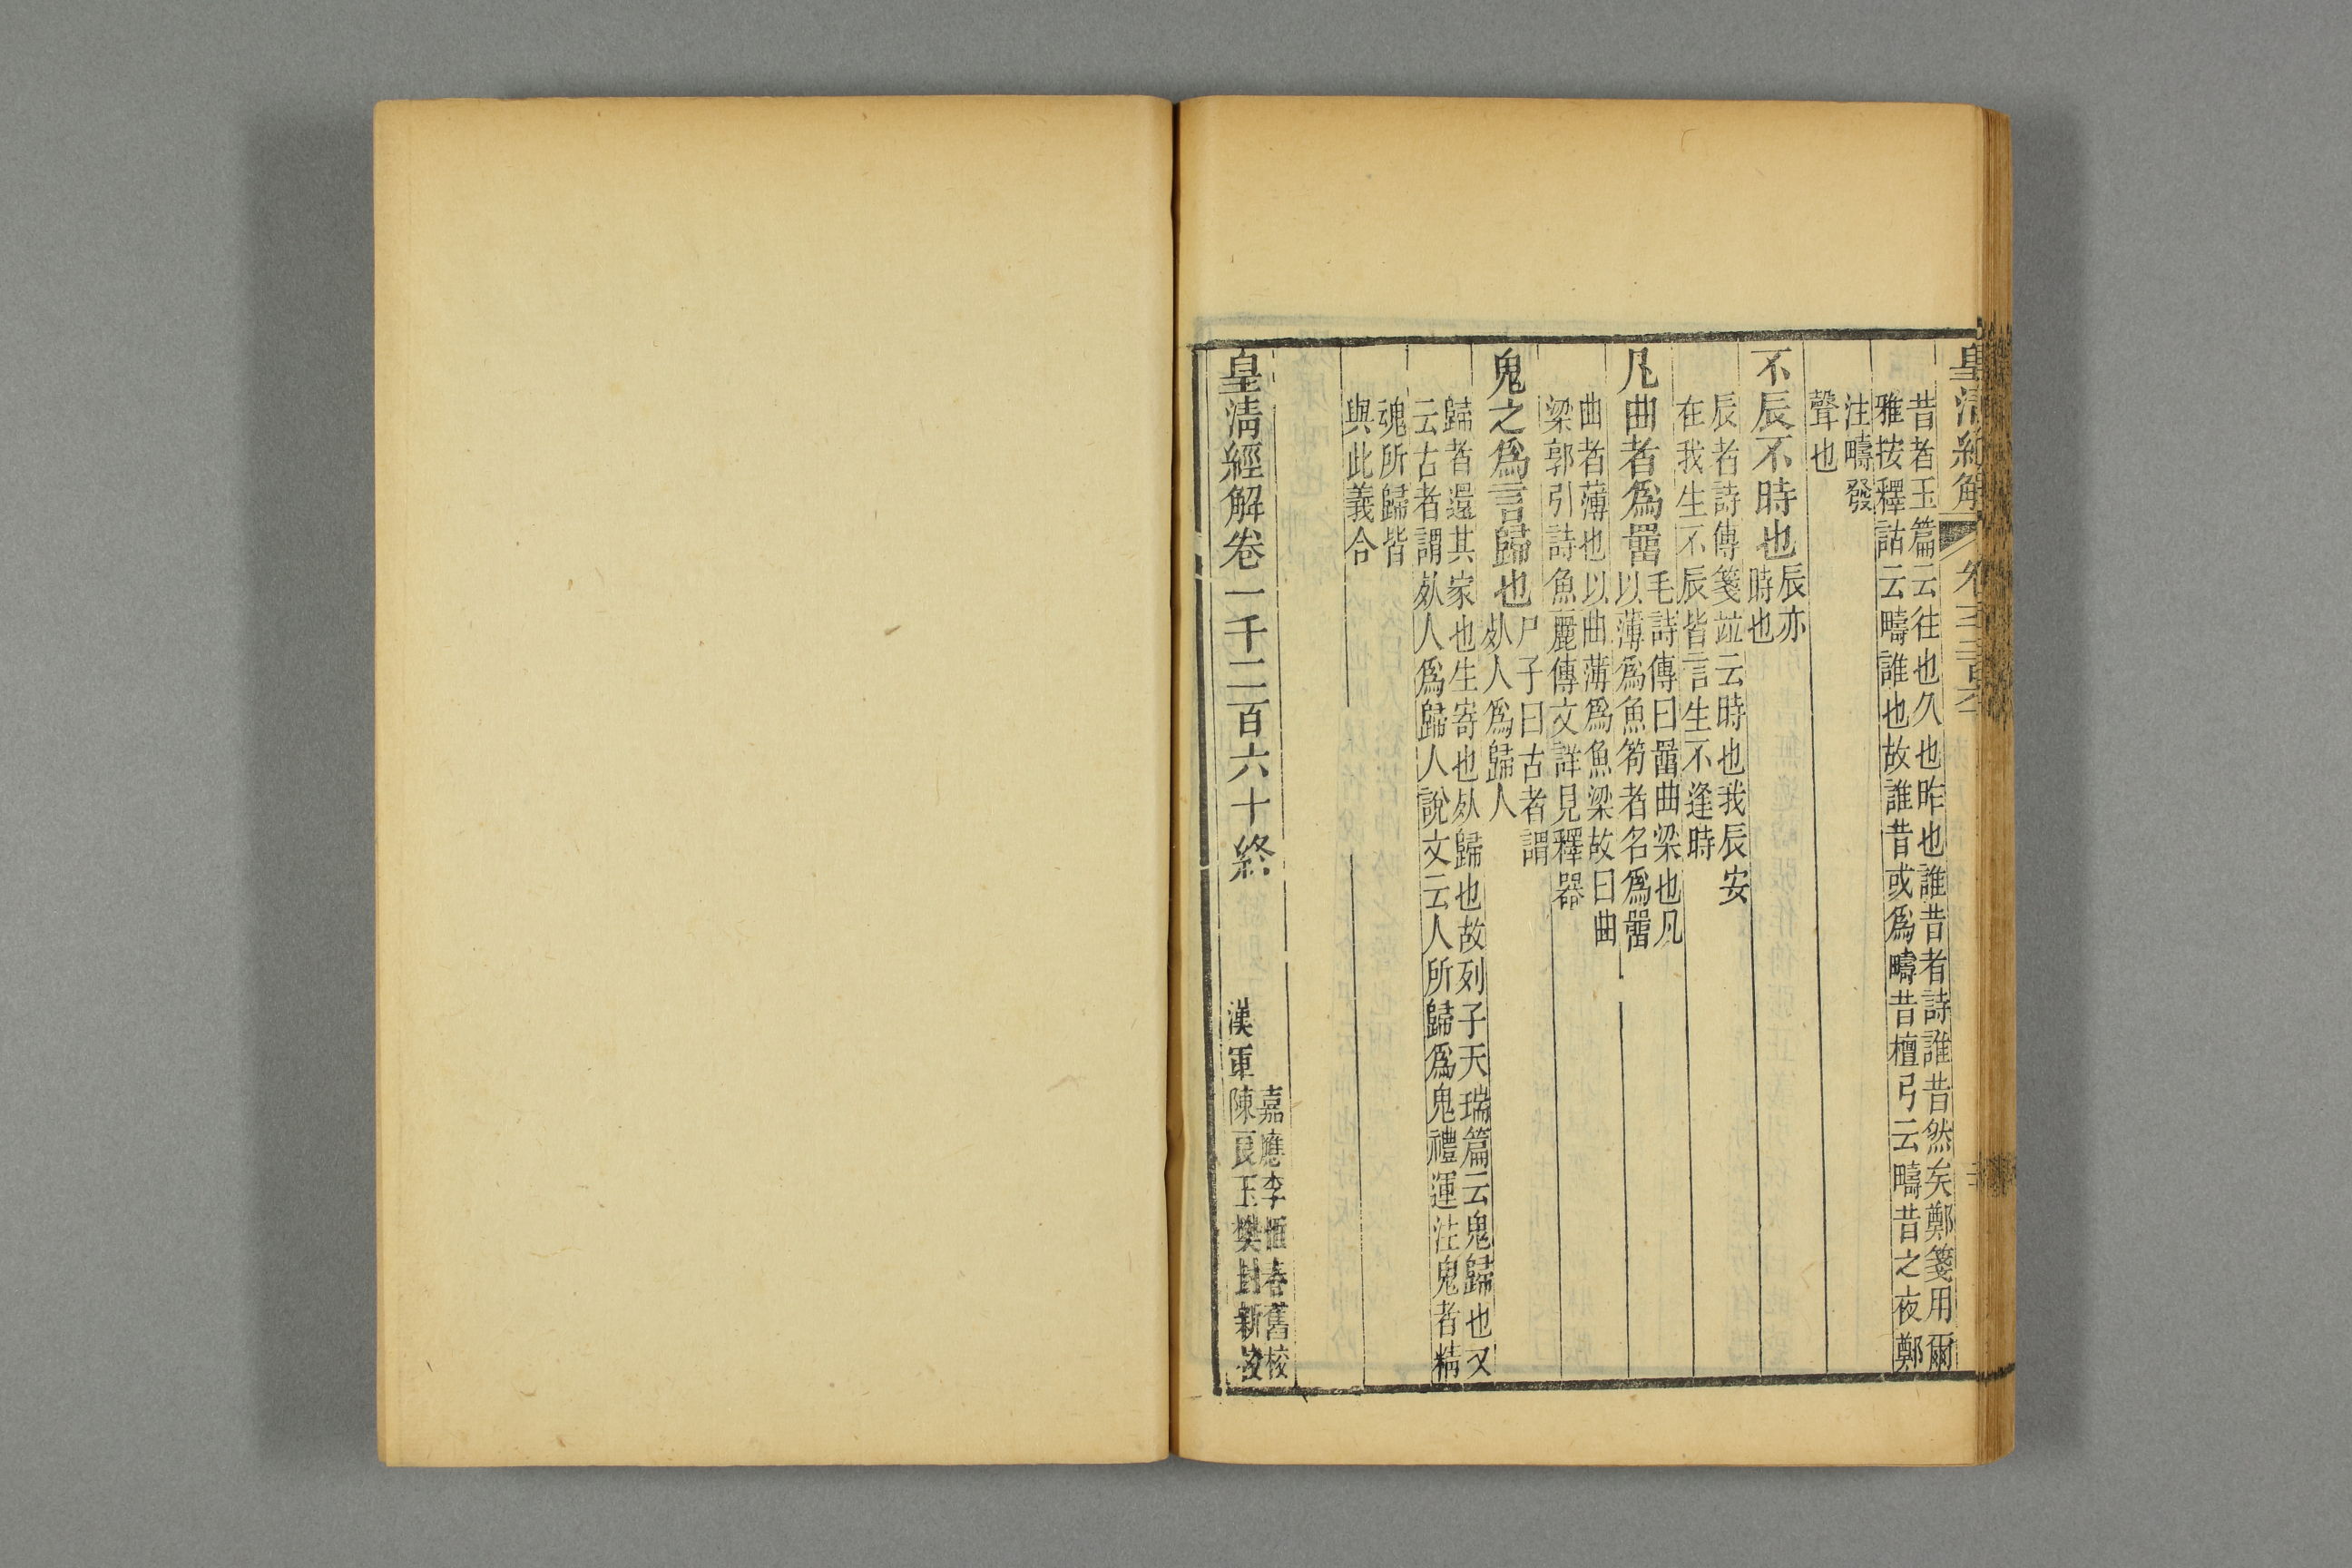 皇清經解
昔者玉篇云往也久也昨也誰昔者詩誰昔然矣鄭箋用爾
雅按釋詁云疇誰也故誰昔或爲疇昔檀弓云疇昔之夜鄭
注疇發
聲也
不辰不時也辰亦
時也
辰者詩傳箋竝云時也我辰安
在我生不辰皆言生不逢時
凡曲者爲罶毛詩傳曰罶曲梁也凡
以薄爲魚笱者名爲罶
曲者薄也以曲薄爲魚梁故曰曲
梁郭引詩魚麗傳文詳見釋器
鬼之爲言歸也尸子曰古者謂
㱙人爲歸人
歸者還其家也生寄也㱙歸也故列子天瑞篇云鬼歸也又
云古者謂㱙人爲歸人說文云人所歸爲鬼禮運注鬼者精
魂所歸皆
與此義合
皇清經解卷一千二百六十終
嘉應李恒春舊校
漢軍陳良玉樊封新校